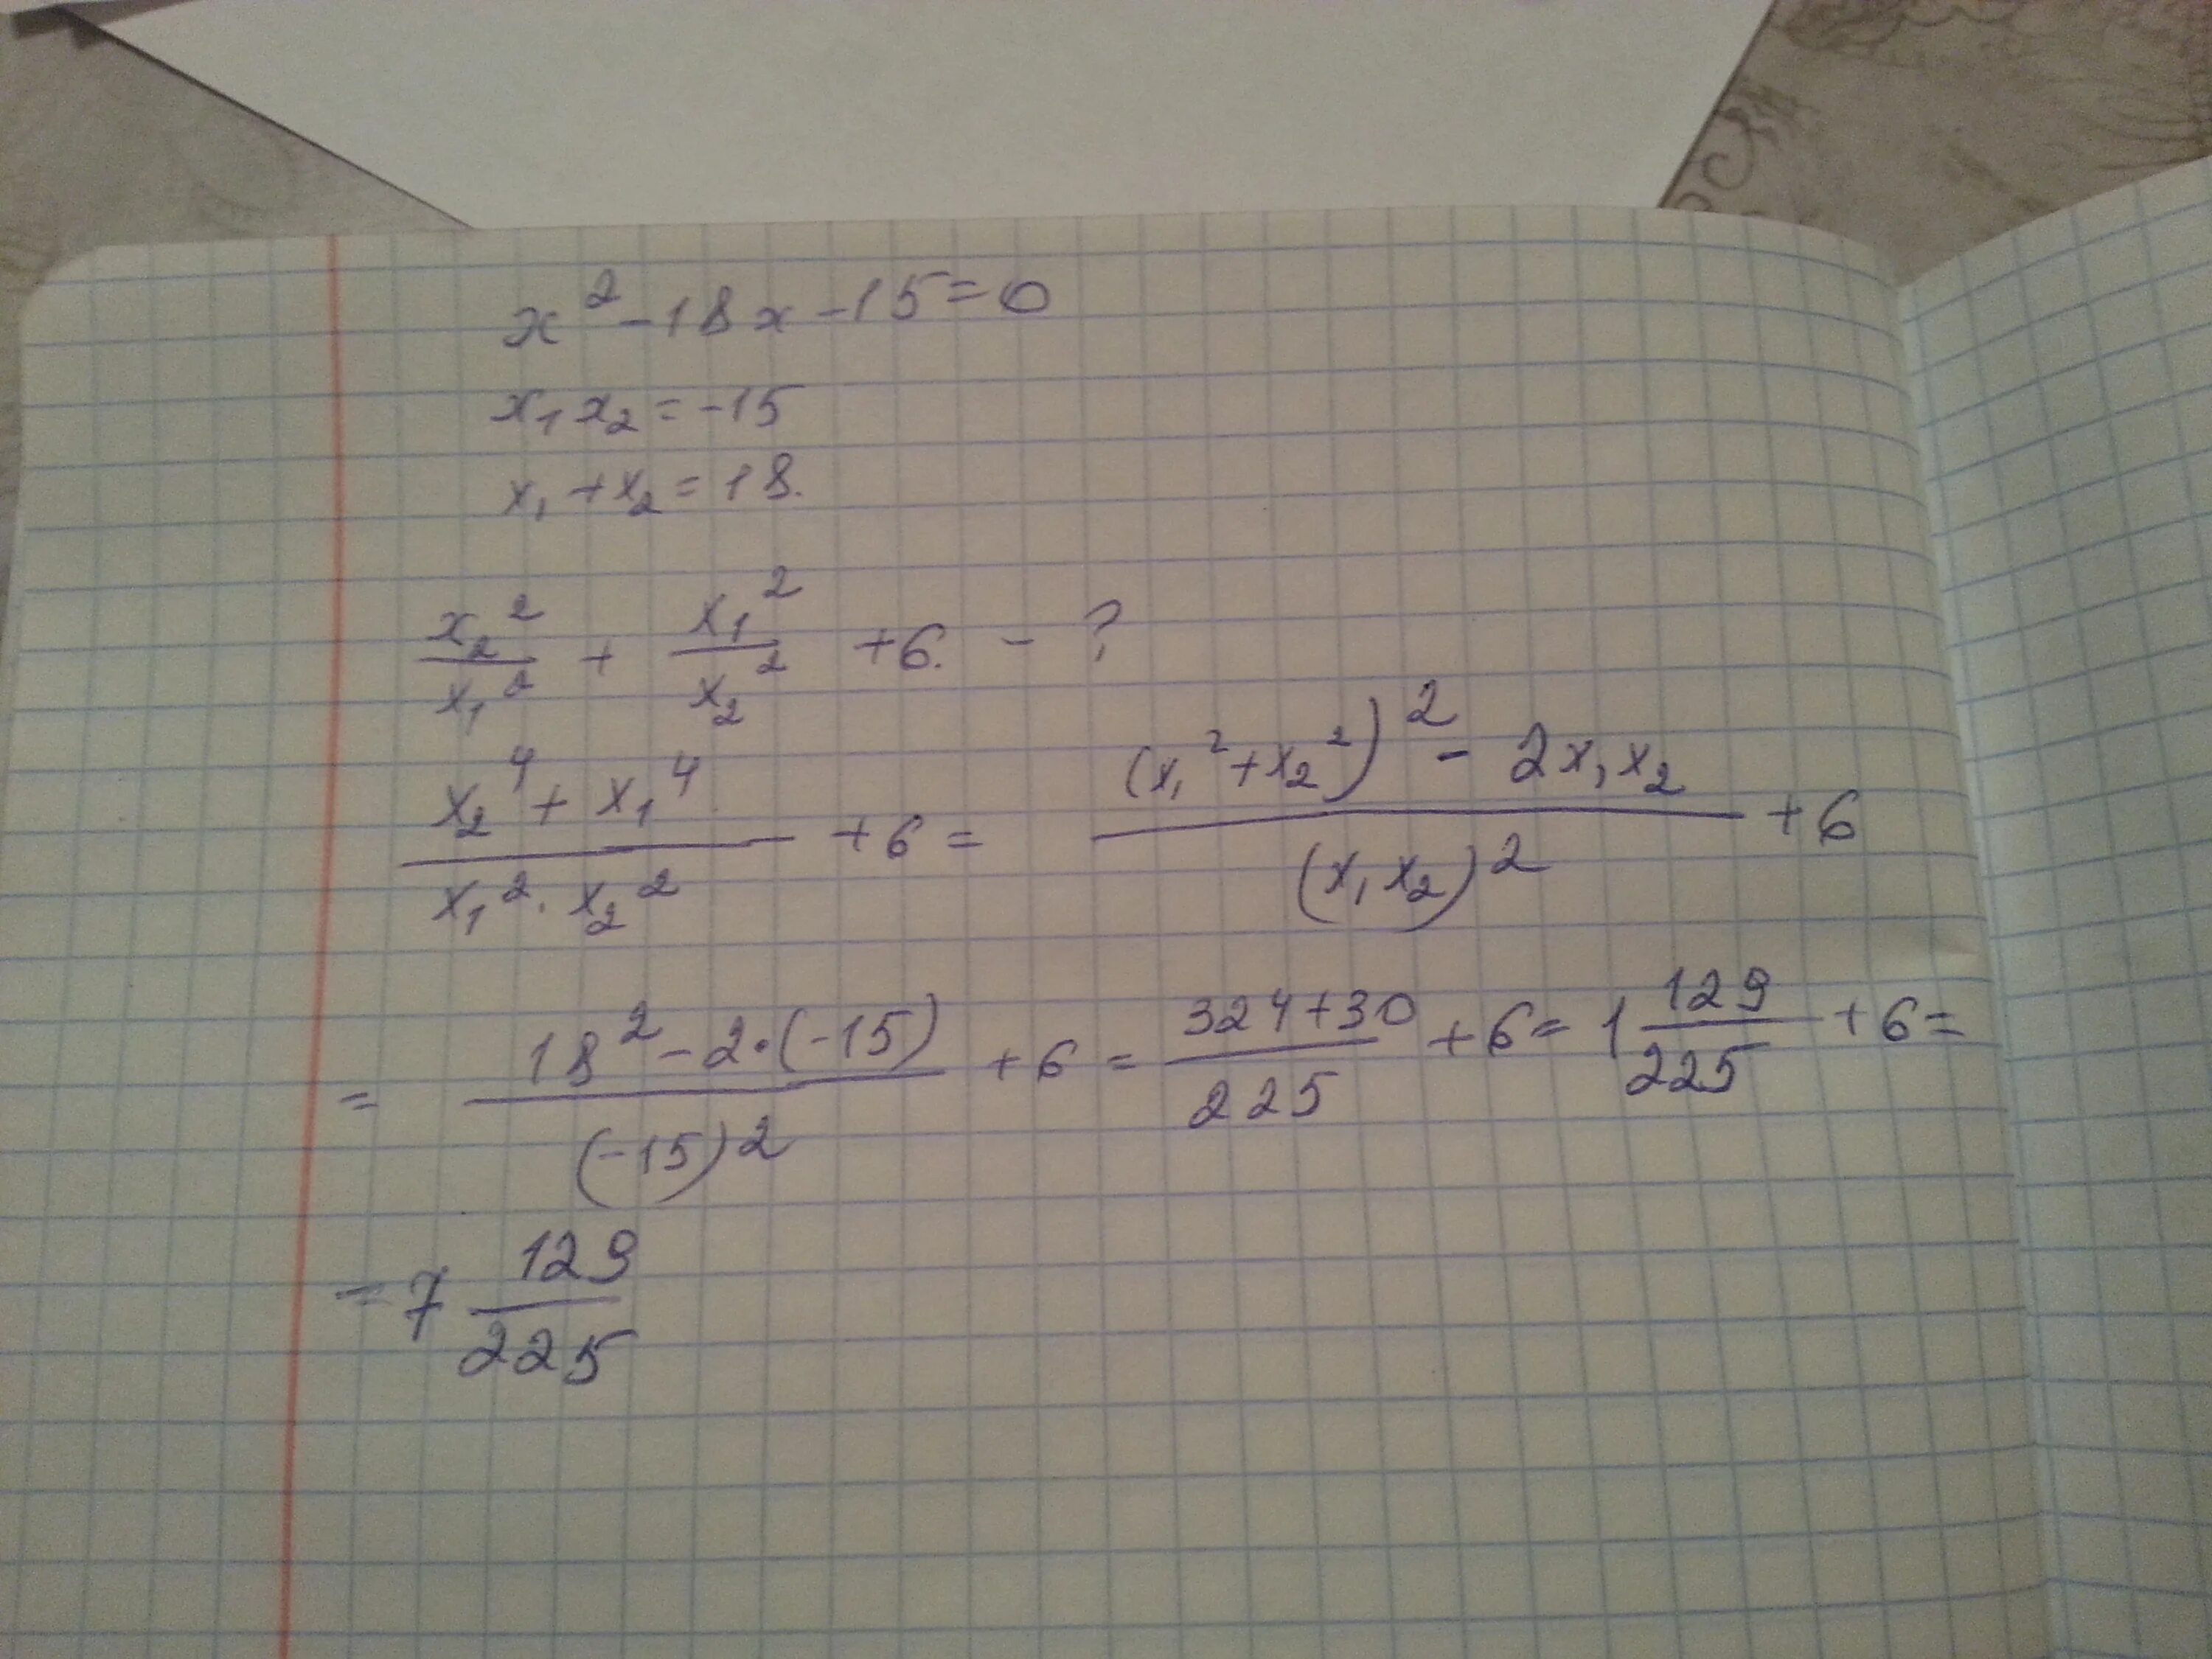 x² - 18x - 15 = 0
x₁x₂ = -15
x₁ + x₂ = 18.
x₂²/x₁² + x₁²/x₂² + 6. - ?
(x₂⁴ + x₁⁴)/(x₁² · x₂²) + 6 = ((x₁² + x₂²)² - 2x₁x₂)/(x₁x₂)² + 6
= (18² - 2·(-15))/(-15)² + 6 = (324 + 30)/225 + 6 = 1 129/225 + 6 =
= 7 129/225